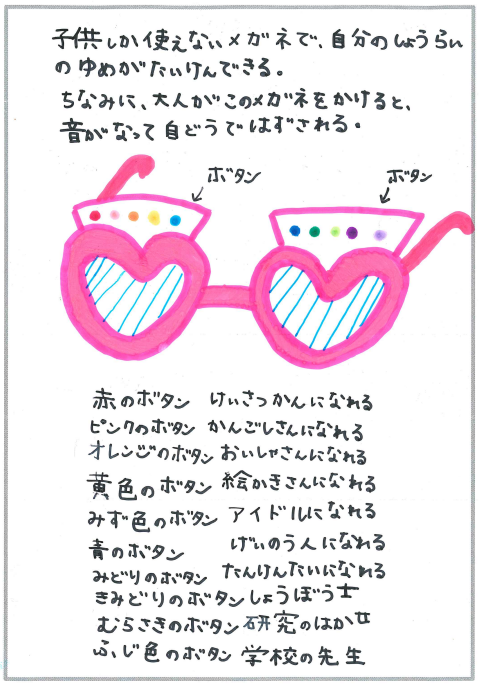 子供しか使えないメガネで、自分のしょうらい
のゆめがたいけんできる。
ちなみに、大人がこのメガネをかけると、
音がなって自どうではずされる。
ボタン
ボタン
赤のボタン けいさつかんになれる
ピンクのボタン かんごしさんになれる
オレンジのボタン おいしゃさんになれる
黄色のボタン 絵かきさんになれる
みず色のボタン アイドルになれる
青のボタン げいのう人になれる
みどりのボタン たんけんたいになれる
きみどりのボタン しょうぼう士
むらさきのボタン 研究のはかせ
ふじ色のボタン 学校の先生